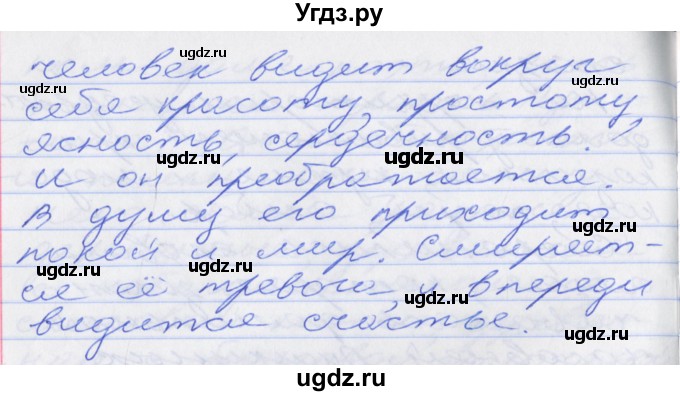 Угдз.ру
человек видит вокруг
себя красоту, простоту
ясность, сердечность.
И он преображается.
В душу его приходит
покой и мир. Смиряет-
ся её тревога, и впереди
видится счастье.
ugdz.ru
ugdz.ru
ugdz.ru
ugdz.ru
ugdz.ru
ugdz.ru
ugdz.ru
ugdz.ru
ugdz.ru
ugdz.ru
ugdz.ru
ugdz.ru
ugdz.ru
ugdz.ru